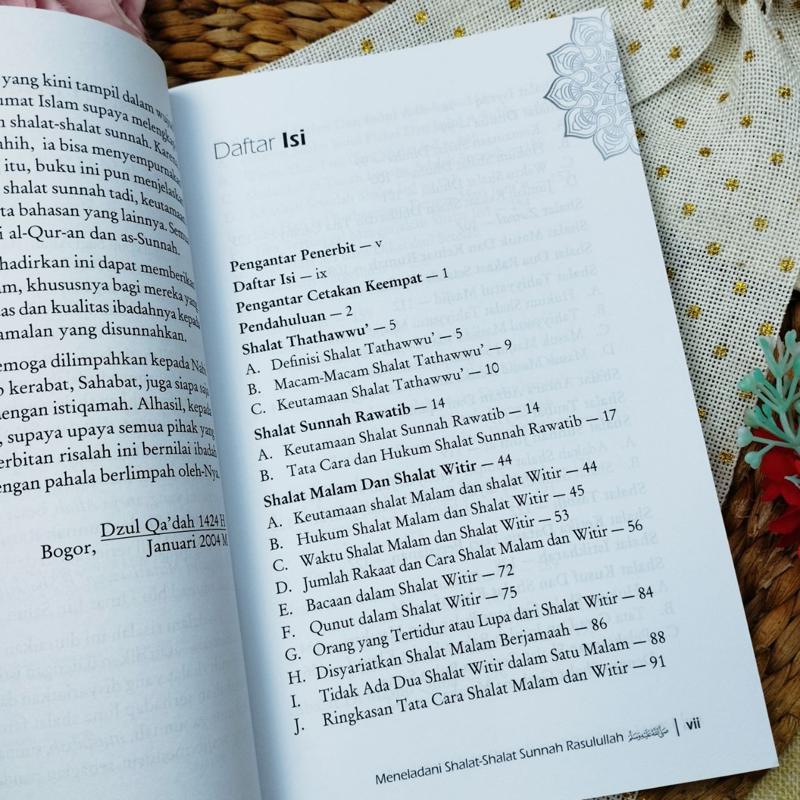 yang kini tampil dalam
umat Islam supaya
shalat-shalat sunnah.
ia bisa menyempurnakan
itu, buku ini pun menjelaskan
shalat sunnah tadi, keutamaan
bahasan yang lainnya.
al-Qur-an dan as-Sunnah.
hadirkan ini dapat memberikan
khususnya bagi mereka yang
dan kualitas ibadahnya kepada
amalan yang disunnahkan.
dilimpahkan kepada
kerabat, Sahabat, juga siapa saja
dengan istiqamah. Alhasil, kepada
supaya upaya semua pihak yang
risalah ini bernilai ibadah
dengan pahala berlimpah oleh-Nya.
Bogor, Dzul Qa'dah 1424 H
Januari 2004 M
Daftar Isi
Pengantar Penerbit — v
Daftar Isi — ix
Pengantar Cetakan Keempat — 1
Pendahuluan — 2
Shalat Thathawwu' — 5
A. Definisi Shalat Tathawwu' — 5
B. Macam-Macam Shalat Tathawwu' — 9
C. Keutamaan Shalat Tathawwu' — 10
Shalat Sunnah Rawatib — 14
A. Keutamaan Shalat Sunnah Rawatib — 14
B. Tata Cara dan Hukum Shalat Sunnah Rawatib — 17
Shalat Malam Dan Shalat Witir — 44
A. Keutamaan shalat Malam dan shalat Witir — 44
B. Hukum Shalat Malam dan Shalat Witir — 45
C. Waktu Shalat Malam dan Shalat Witir — 53
D. Jumlah Rakaat dan Cara Shalat Malam dan Witir — 56
E. Bacaan dalam Shalat Witir — 72
F. Qunut dalam Shalat Witir — 75
G. Orang yang Tertidur atau Lupa dari Shalat Witir — 84
H. Disyariatkan Shalat Malam Berjamaah — 86
I. Tidak Ada Dua Shalat Witir dalam Satu Malam — 88
J. Ringkasan Tata Cara Shalat Malam dan Witir — 91
Meneladani Shalat-Shalat Sunnah Rasulullah ﷺ | vii